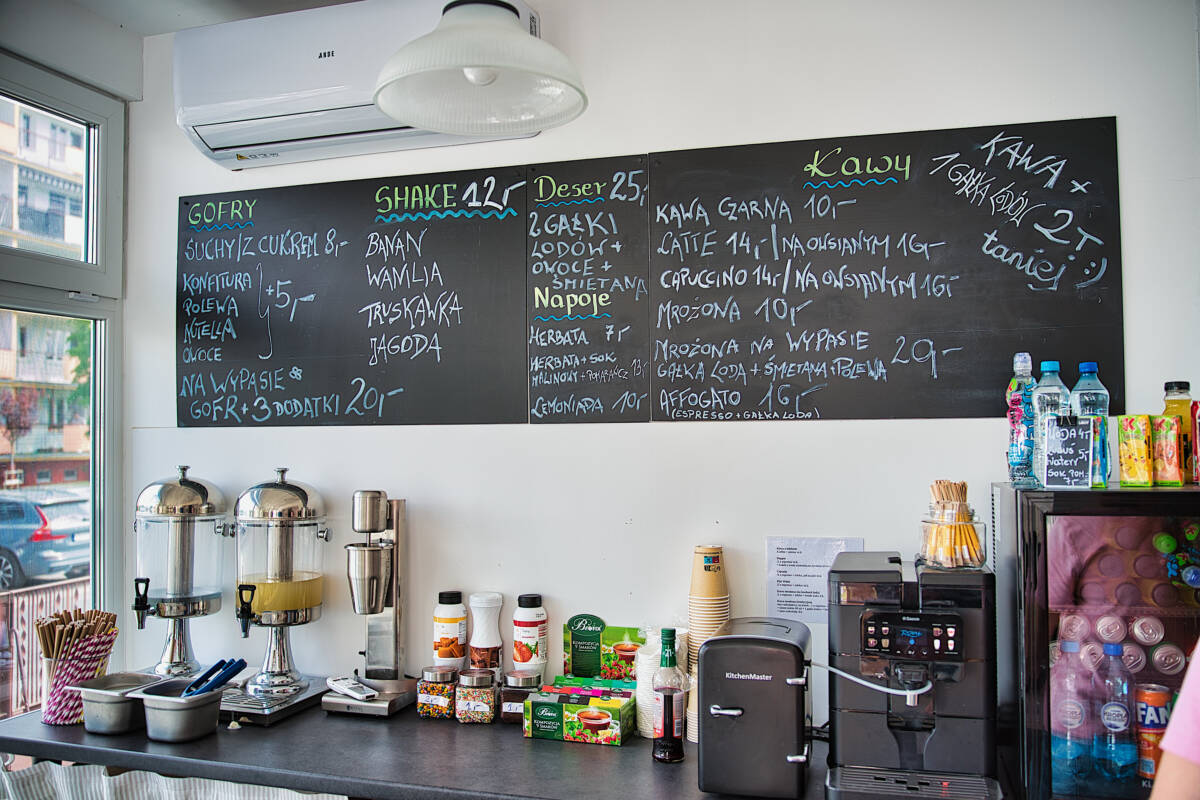 GOFRY
SUCHY/Z CUKREM 8,-
KONFITURA
POLEWA
NUTELLA
OWOCE
+5,-
NA WYPASIE
GOFR + 3 DODATKI 20,-
SHAKE 12,-
BANAN
WANILIA
TRUSKAWKA
JAGODA
Deser 25,-
2 GAŁKI
LODÓW +
OWOCE +
ŚMIETANA
Napoje
HERBATA 7,-
HERBATA + SOK
MALINOWY + POMARAŃCZ 13,-
LEMONIADA 10,-
Kawy
KAWA CZARNA 10,-
LATTE 14,-/NA OWSIANYM 16,-
CAPUCCINO 14,-/NA OWSIANYM 16,-
MROŻONA 10,-
MROŻONA NA WYPASIE
GAŁKA LODA + ŚMIETANA + POLEWA 20,-
AFFOGATO 16,-
(ESPRESSO + GAŁKA LODA)
KAWA +
1 GAŁKA LODÓW
2 zł
taniej :)
WODA 4,-
KUBUŚ
WATERR 5,-
KitchenMaster
Saeco
BiFIX
KOMPOZYCJA
9 SMAKÓW
BiFIX
KOMPOZYCJA
9 SMAKÓW
FAN